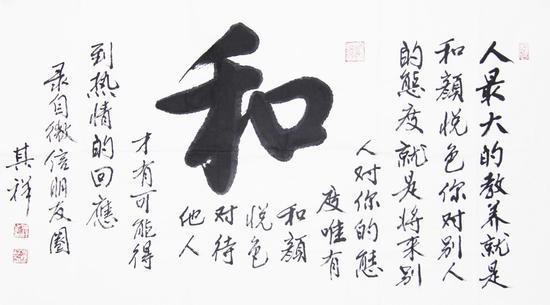 和
人最大的教养就是
和顏悦色你对别人
的態度就是將来别
人对你的態
度唯有
和顏
悦色
对待
他人
才有可能得
到热情的回應
录自微信朋友圈
其祥